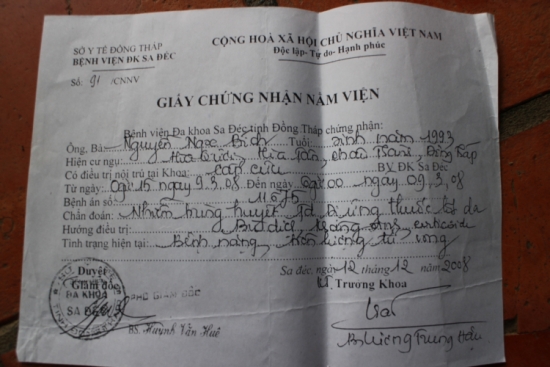 SỞ Y TẾ ĐỒNG THÁP
BỆNH VIỆN ĐK SA ĐÉC
Số: 91 /CNNV
CỘNG HOÀ XÃ HỘI CHỦ NGHĨA VIỆT NAM
Độc lập- Tự do- Hạnh phúc
GIẤY CHỨNG NHẬN NẰM VIỆN
Bệnh viện Đa khoa Sa Đéc tỉnh Đồng Tháp chứng nhận:
Ông, Bà: Nguyễn Ngọc Bích Tuổi: sinh năm 1993
Hiện cư ngụ: Tân, Châu Thành, Đồng Tháp
Có điều trị nội trú tại Khoa: Cấp cứu BV ĐK Sa Đéc
Từ ngày: 15 ngày 9.3.08 Đến ngày 00 ngày 09.3.08
Bệnh án số: 11675
Chẩn đoán: Nhiễm trùng huyết dị ứng thuốc da
Hướng điều trị:
Tình trạng hiện tại: Bệnh nặng, tiên lượng tử vong
Sa đéc, ngày 12 tháng 12 năm 2008
Duyệt
Giám đốc
Trương Khoa
ĐA KHOA
SA ĐÉC
PHÓ GIÁM ĐỐC
BS. Huỳnh Văn Huê
Bs Lương Trung Hậu